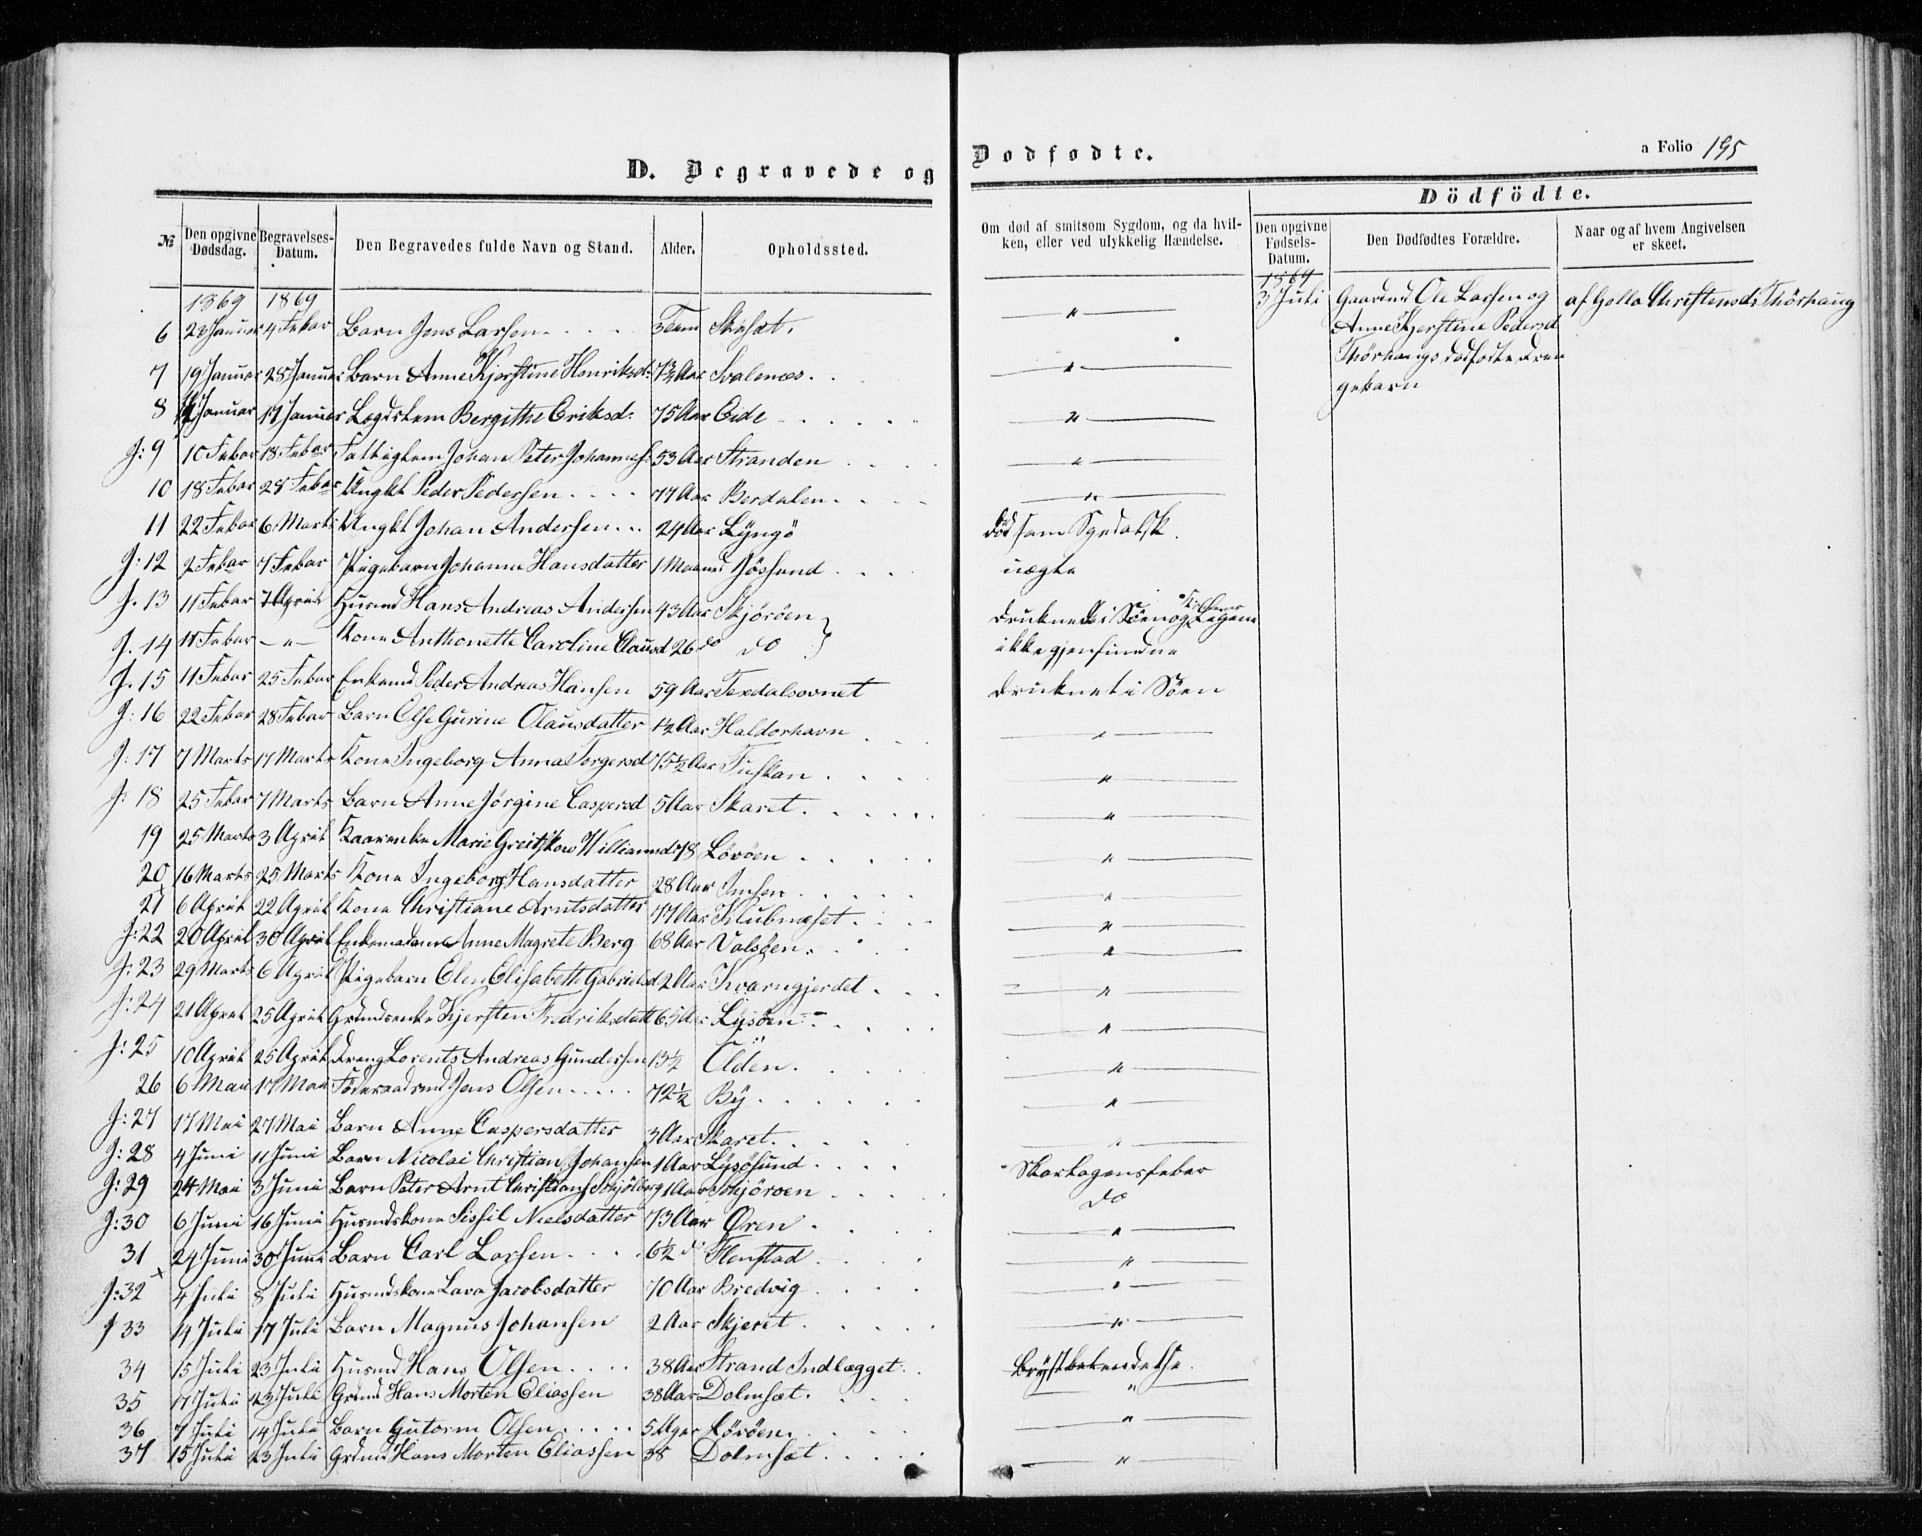 D. Begravede og Dodfodte.
a Folio 195
Dödfödte.
№ | Den opgivne Dødsdag. | Begravelses-Datum. | Den Begravedes fulde Navn og Stand. | Alder. | Opholdssted. | Om død af smitsom Sygdom, og da hvilken, eller ved ulykkelig Hændelse. | Den opgivne Fødsels-Datum. | Den Dødfødtes Forældre. | Naar og af hvem Angivelsen er skeet.
1869 1869 1869
3 Juli Gaardmd Ole Larsen og af Christensd: Thörhaug
Anne Kjerstine Pedersd
Thörhaugs dodfodte Dren
gebarn
6 23 Januar 4 Febar Barn Jens Larsen
7 19 Januar 28 Januar Barn Anne Kjerstine Henriksd: Aar Svalenæs. "
8 Januar 19 Januar Lægdslem Bergithe Eriksd: 75 Aar Eide "
J: 9 10 Febar 18 Febar Fattiglem Johan Peter Johannes: 53 Aar Stranden "
10 18 Febar 28 Febar Ungkl Peder Pedersen 77 Aar Berdalen "
11 22 Febar 6 Marts Ungkl Johan Andersen 24 Aar Lyngö död som
J: 12 2 Febar 7 Febar Pigebarn Johanne Hansdatter 1 Maaned Jösund uægte
J. 13 11 Febar 7 April Husmd Hans Andreas Andersen 43 Aar Skjöröen druknede i Söen og Legene
J. 14 11 Febar — " — Kone Anthonette Caroline Clausd 26 do do ikke gjenfundne
J. 15 11 Febar 25 Febar Enkemd Peder Andreas Hansen 59 Aar Texdalsovnet druknet i Söen
J: 16 22 Febar 28 Febar Barn Else Gurine Olausdatter 1½ Aar Haldorhavn "
J: 17 7 Marts 17 Marts Kone Ingeborg Anna Torgersd 75½ Aar Fuskan "
J: 18 25 Febar 7 Marts Barn Anne Jörgine Caspersd 5 Aar Skaret "
19 25 Marts 3 April Marie Willumsd: 78 Lövöen "
20 16 Marts 25 Marts Kone Ingeborg Hansdatter 28 Aar Imsen "
21 6 April 22 April Kone Christiane Arntsdatter 77 Aar Klubnæset "
J: 22 20 April 30 April Enkemadam Anne Magrete Berg 68 Aar Valsöen "
J: 23 29 Marts 6 April Pigebarn Elen Elisabeth Gabrielsd 2 Aar Kvarngjerdet "
J: 24 21 April 25 April Grmdsenke Kjersten Fredriksdatt 65 Aar Lysöen "
J: 25 10 April 25 April Dreng Lorents Andreas Gundersen 13½ Olden "
26 6 Mai 17 Mai Föderaadsmd Jens Olsen 72½ By "
J: 27 17 Mai 27 Mai Barn Anne Caspersdatter 3 Aar Skaret "
J: 28 4 Juni 11 Juni Barn Nicolai Christian Johansen 1 Aar Lysösund Skarlagensfeber
J: 29 24 Mai 3 Juni Barn Peter Arnt Christians Skjölberg 1 Aar Skjöroen do
J: 30 6 Juni 16 Juni Husmdskone Sissil Nielsdatter 73 Aar Øren "
31 24 Juni 30 Juni Barn Carl Larsen 6½ do Flenstad "
J: 32 4 Juli 8 Juli Husmdskone Lava Jacobsdatter 70 Aar Bredvig "
J 33 14 Juli 17 Juli Barn Magnus Johansen 2 Aar Skjeret "
34 15 Juli 23 Juli Husmd Hans Olsen 38 Aar Strand Indlægget Brystbetendelse
35 17 Juli 23 Juli Grmd Hans Morten Eliassen 38 Aar Dolmsæt "
36 7 Juli 14 Juli Barn Gutorm Olsen 5 Uger Lövöen "
37 15 Juli 23 Juli Grdmd Hans Morten Eliassen 38 Dolmsæt "